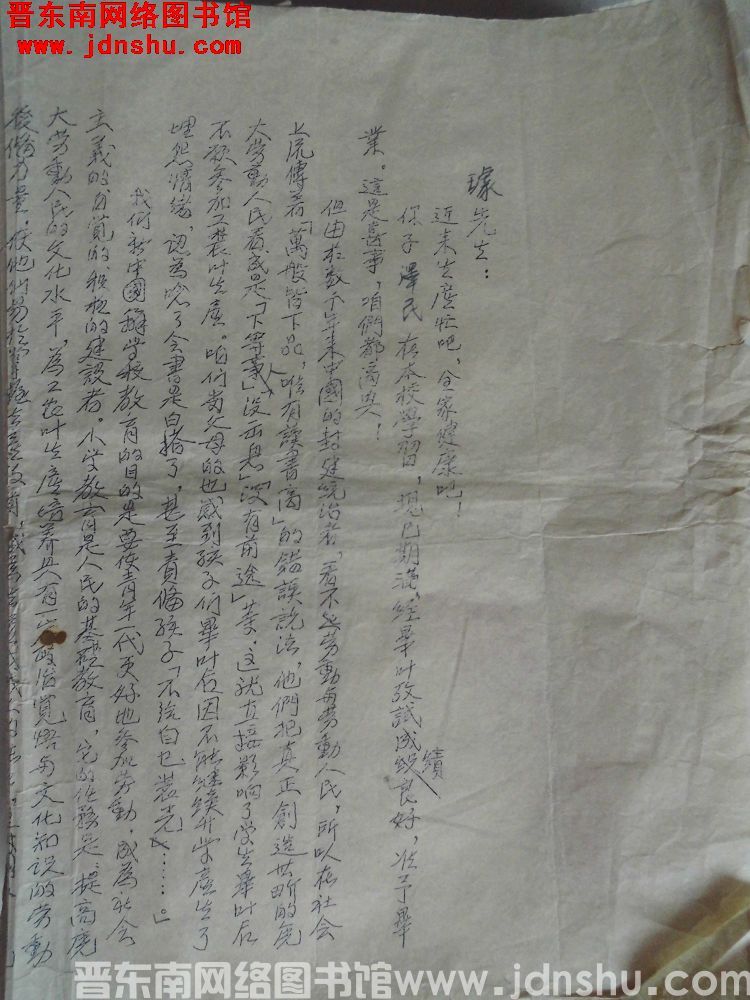 晋东南网络图书馆
www.jdnshu.com
璩先生：
近来生産忙吧，全家健康吧！
你子澤民在本校學習，現已期滿，經畢叶攷試成績良好，准予畢
業。這是喜事，咱們都高興！
但由於数千年来中國的封建統治者，看不起劳動与劳動人民，所以在社会
上流傳着「萬般皆下品，唯有讀書高」的錯誤説法，他們把真正創造世界的廣
大劳動人民看成是「下等人」「没出息」「没有前途」等。这就直接影响了学生畢叶后
不願参加工農叶生産。咱们当父母的也感到孩子们畢叶后因不能継续升学産生了
埋怨情绪，認為唸了会書是白搭了，甚至責備孩子「不给自己装光」……。
我们新中國辦学校教育的目的是要使青年一代更好地参加劳動，成為社会
主義的自覚的积极的建設者。小学教育是人民的基礎教育，它的任務是：提高廣
大劳動人民的文化水平，為工农叶生産培养具有一定政治覚悟与文化知識的劳動
後備力量，使他们
晋东南网络图书馆 www.jdnshu.com